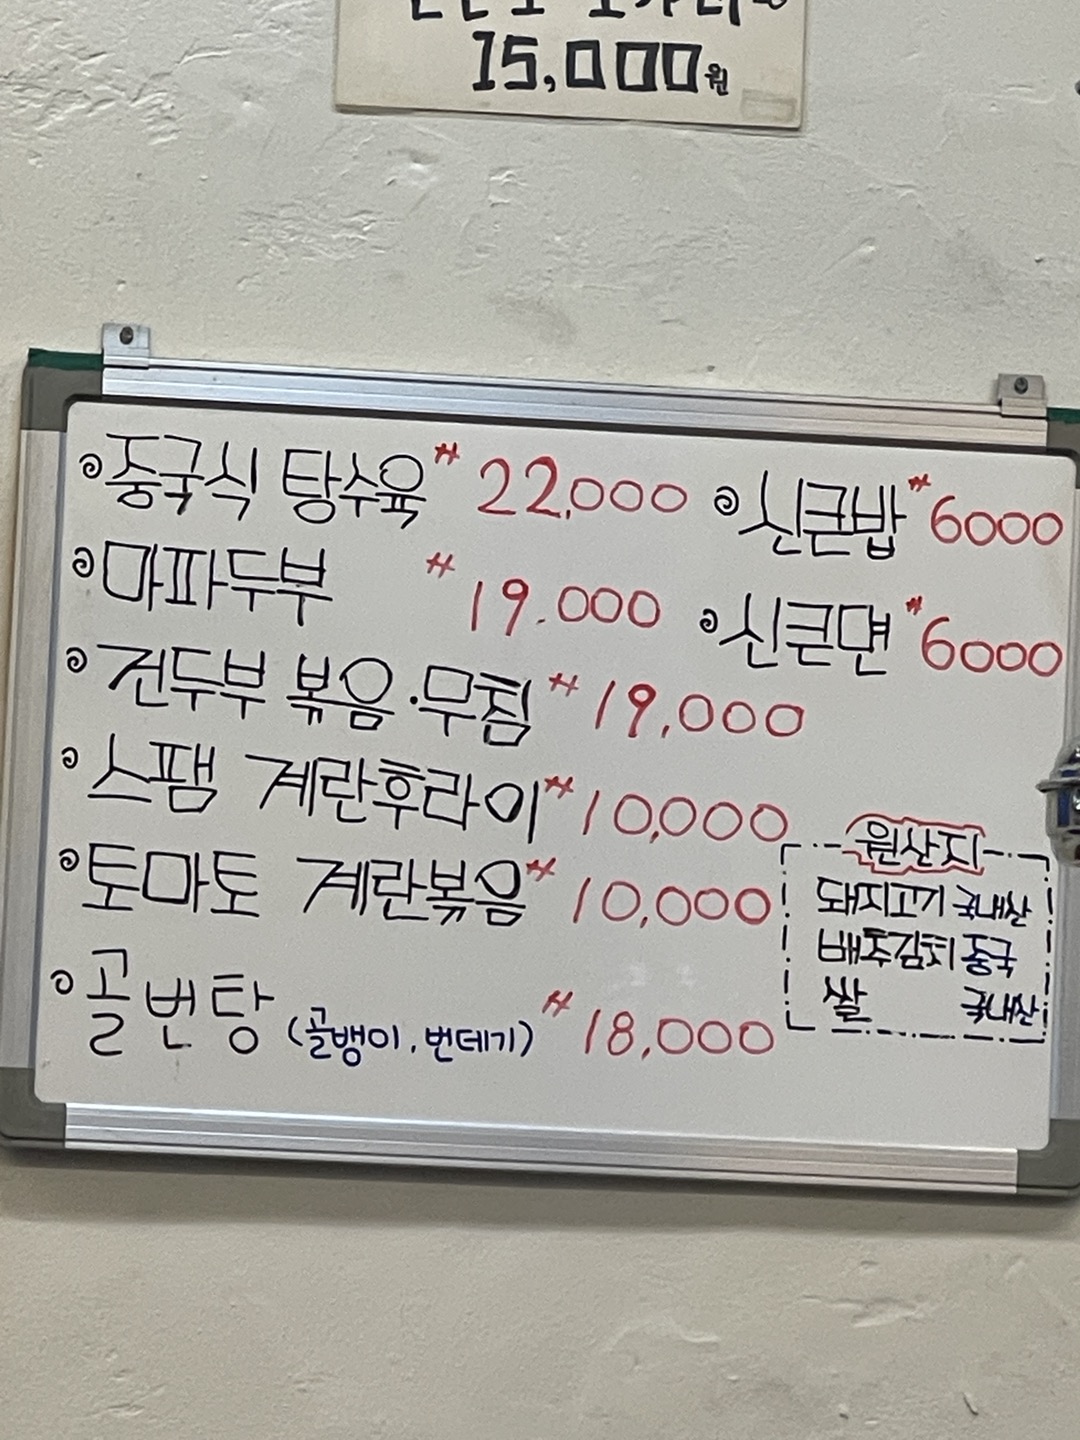 15,000원
중국식 탕수육 ₩22,000
마파두부 ₩19.000
건두부 볶음·무침 ₩19,000
스팸 계란후라이 ₩10,000
토마토 계란볶음 ₩10,000
골번탕 (골뱅이, 번데기) ₩18,000
신큰밥 ₩6000
신큰면 ₩6000
원산지
돼지고기 국내산
배추김치 중국
쌀 국내산